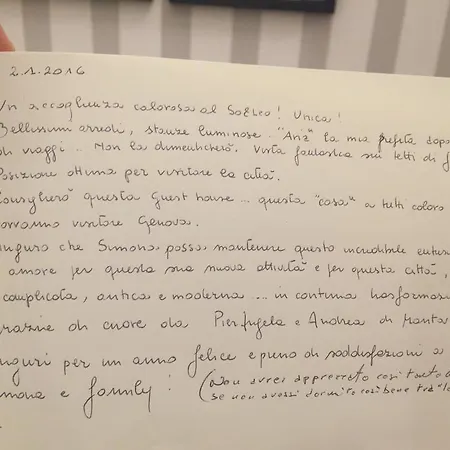 2.1.2016
Un accoglienza calorosa al Soffio! Unica!
Bellissimi arredi, stanze luminose. "Aria" la mia prefita dopo
di viaggi.. Non la dimenticherò. Vista fantastica sui tetti di
Posizione ottima per visitare la città.
Consiglierò questa Guest house... questa "casa" a tutti coloro
vorranno visitare Genova.
auguro che Simona possa mantenere questo incredibile entus
amore per questa sua nuova attività e per questa città,
complicata, antica e moderna... in continua trasformaz
grazie di cuore da Pierangela e Andrea di Manto
auguri per un anno felice e pieno di soddisfazioni a
mona e family! (Non avrei apprezzato così tanto
se non avessi dormito così bene tra